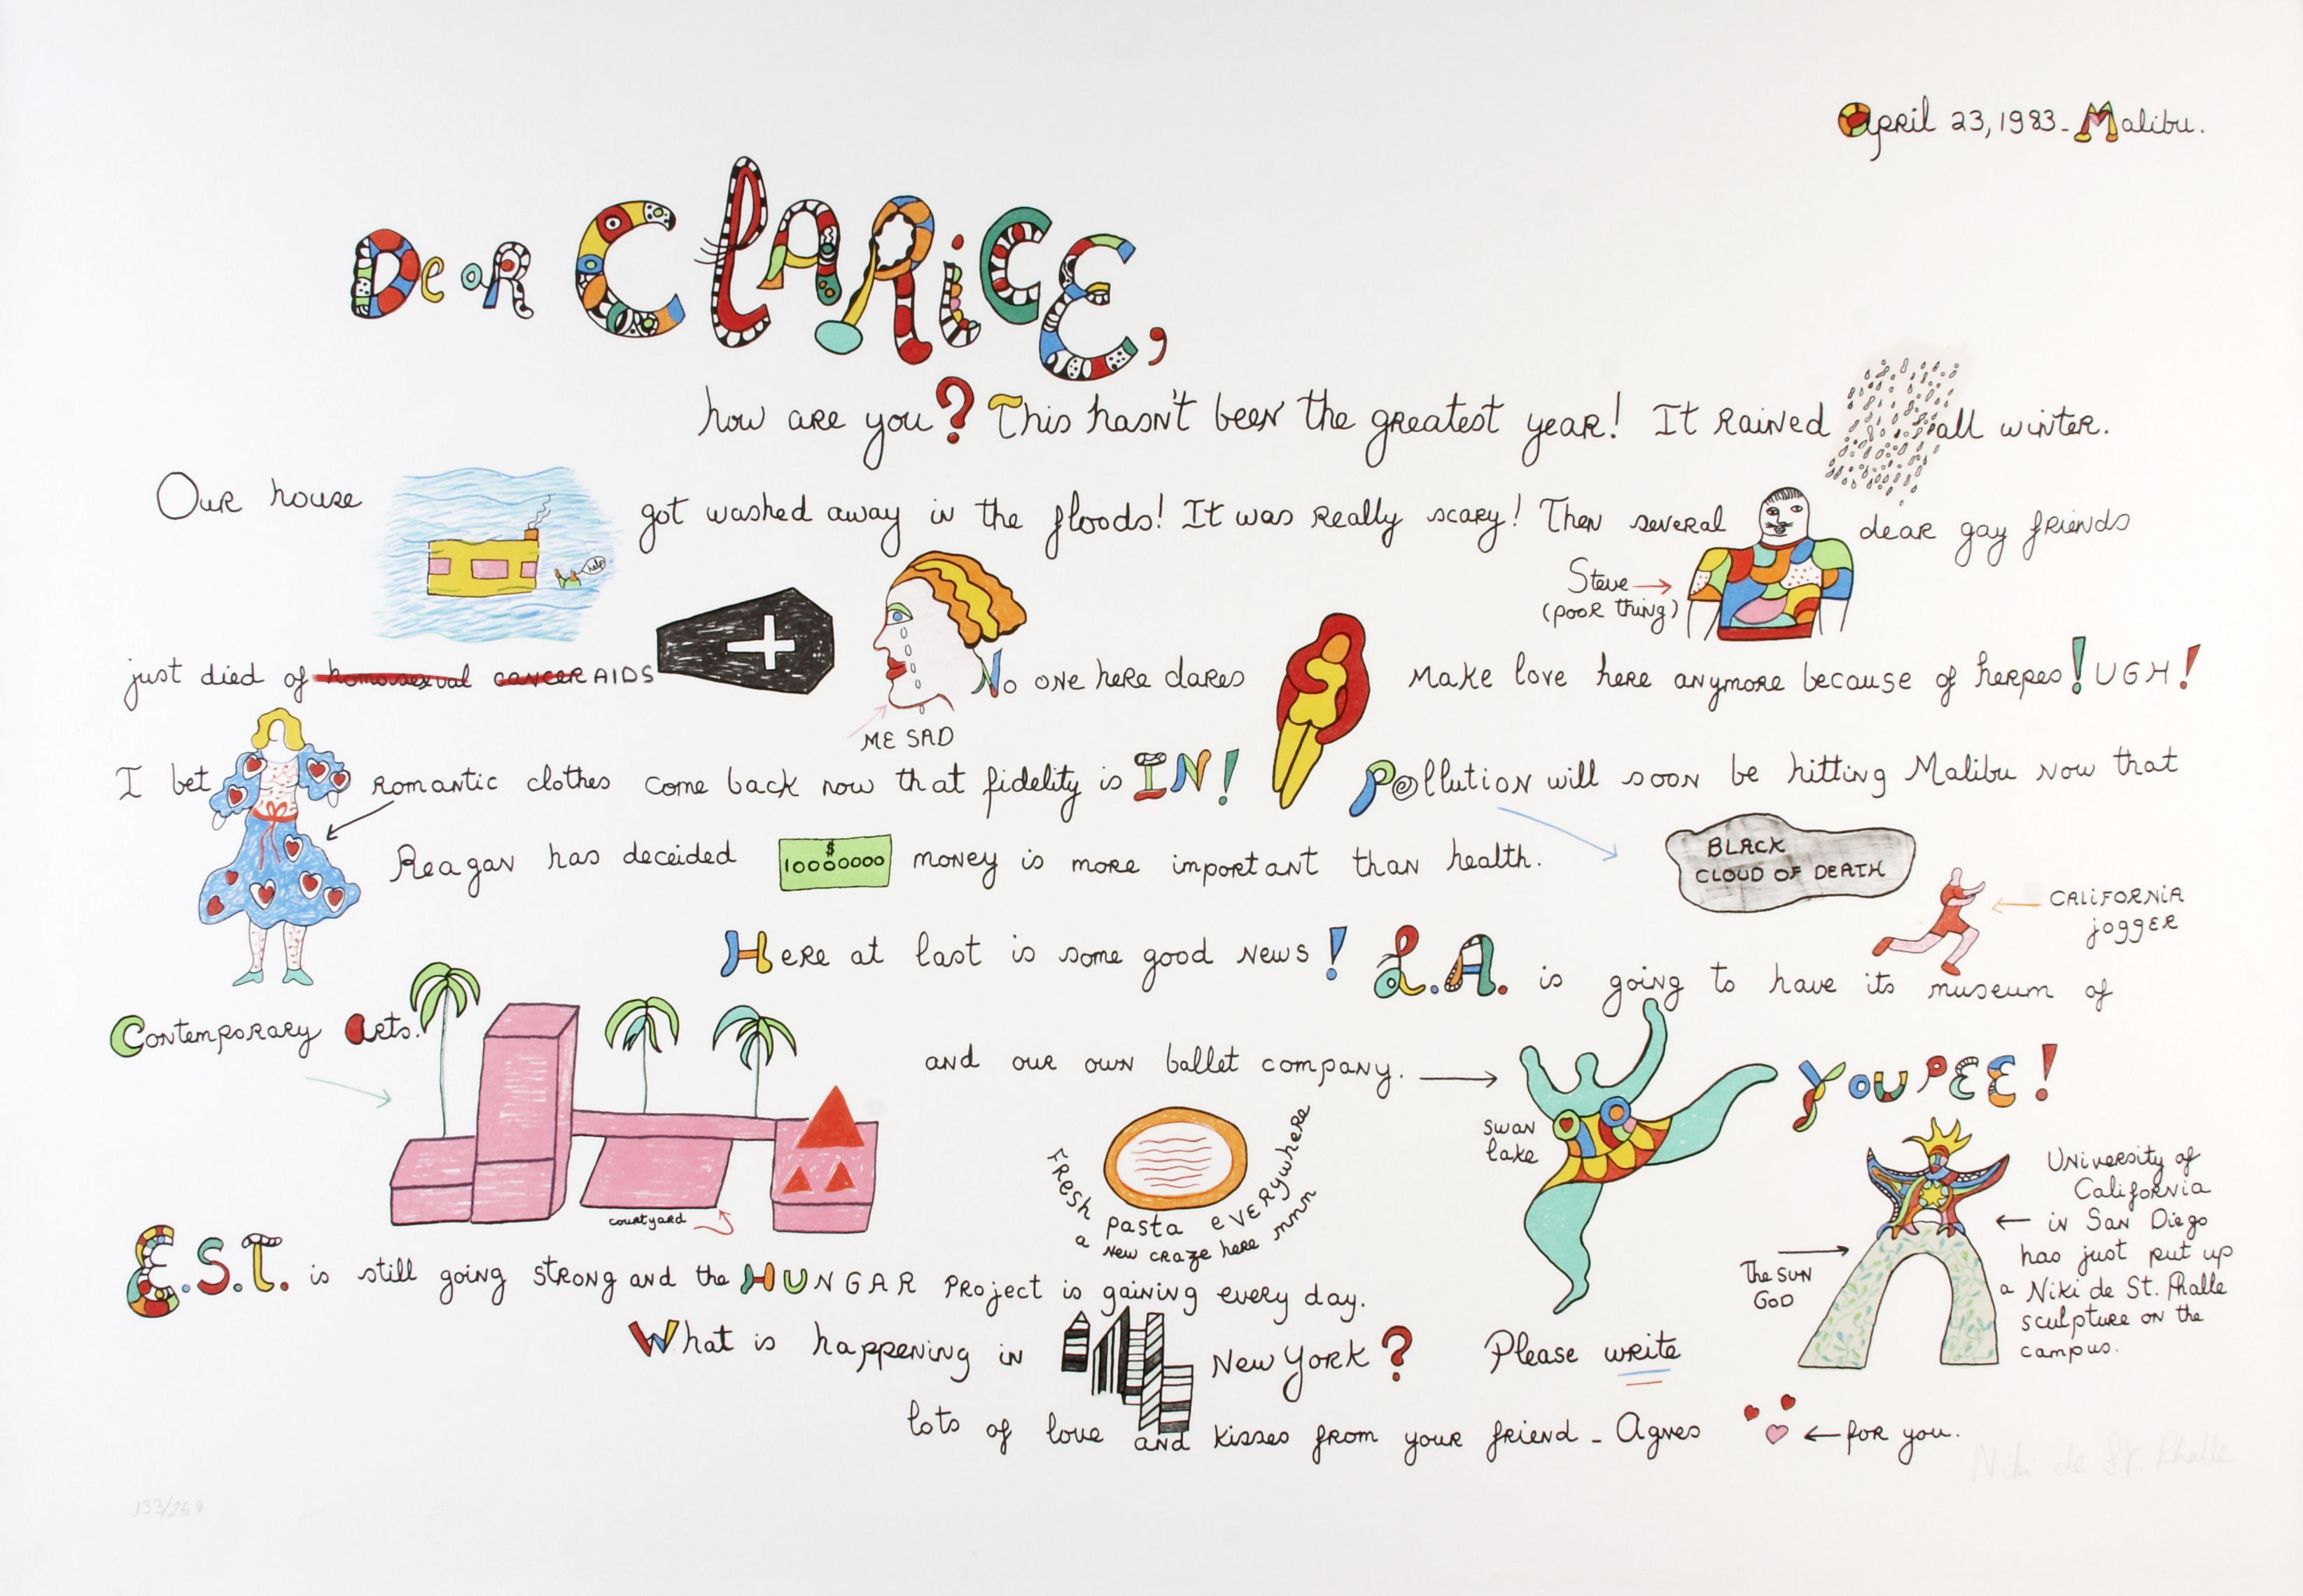 April 23, 1983 - Malibu.
Dear Clarice,
how are you? This hasn't been the greatest year! It rained all winter.
Our house got washed away in the floods! It was really scary! Then several dear gay friends
help
Steve →
(poor thing)
just died of homosexual cancer AIDS No one here dares make love here anymore because of herpes! UGH!
ME SAD
I bet romantic clothes come back now that fidelity is IN! Pollution will soon be hitting Malibu now that
Reagan has decided $ 10000000 money is more important than health.
BLACK
CLOUD OF DEATH
← CALIFORNIA
jogger
Here at last is some good news! L.A. is going to have its museum of
Contemporary Arts. and our own ballet company. → YOUPEE!
swan
lake
courtyard
Fresh pasta everywhere
a new craze here mmm
The SUN
GOD
University of
California
← in San Diego
has just put up
a Niki de St. Phalle
sculpture on the
campus.
E.S.T. is still going strong and the HUNGAR Project is gaining every day.
What is happening in New York? Please write
lots of love and kisses from your friend - Agnes ← for you.
Niki de St. Phalle